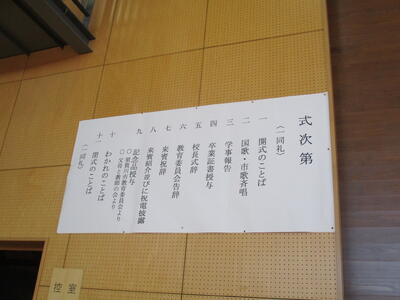 式次第
（一同礼）
一 開式のことば
二 国歌・市歌斉唱
三 学事報告
四 卒業証書授与
五 校長式辞
六 教育委員会告辞
七 来賓祝辞
八 来賓紹介並びに祝電披露
九 記念品授与
○ 須賀川市教育委員会より
○ 父母と教師の会より
十 わかれのことば
十一 閉式のことば
（一同礼）
控室